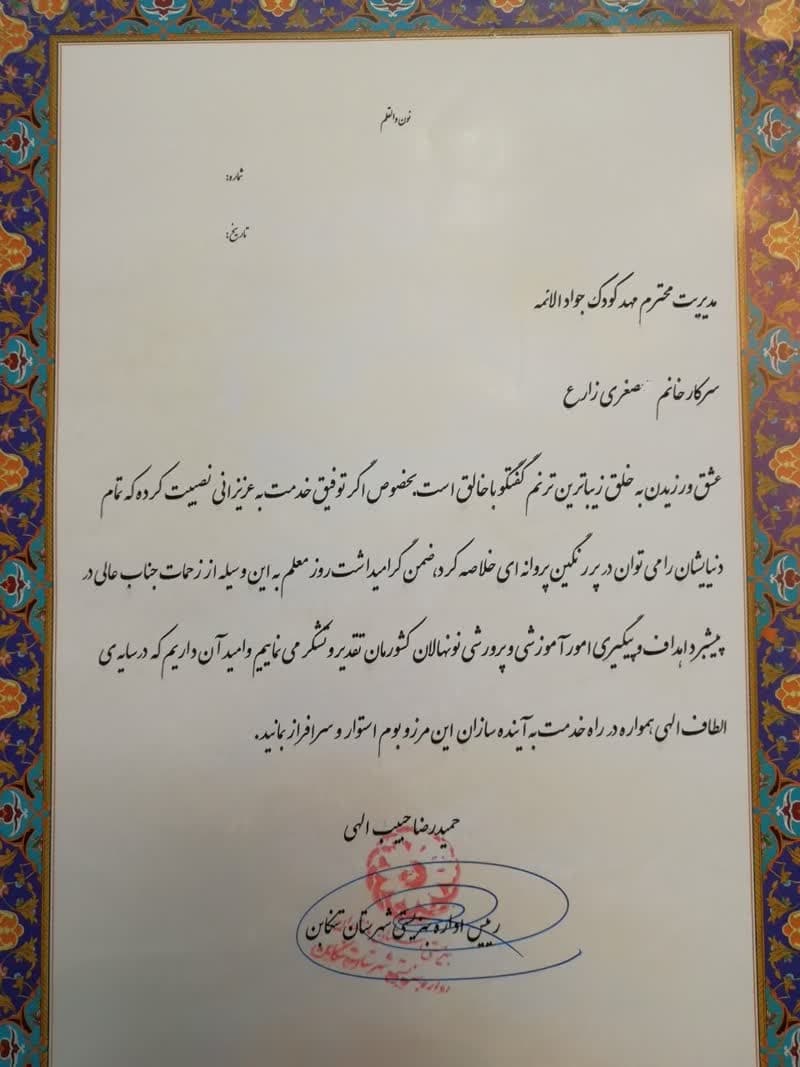 نون والقلم
شماره:
تاریخ:
مدیریت محترم مهد کودک جواد الائمه
سرکار خانم صغری زارع
عشق ورزیدن به خلق زیباترین ترنم گفتگو با خالق است. بخصوص اگر توفیق خدمت به عزیزانی نصیبت کرده که تمام
دنیایشان را می توان در پر رنگین پروانه ای خلاصه کرد، ضمن گرامیداشت روز معلم به این وسیله از زحمات جناب عالی در
پیشبرد اهداف و پیگیری امور آموزشی و پرورشی نونهالان کشورمان تقدیر و تشکر می نماییم و امید آن داریم که در سایه ی
الطاف الهی همواره در راه خدمت به آینده سازان این مرز و بوم استوار و سرافراز بمانید.
حمیدرضا حبیب الهی
رییس اداره بهزیستی شهرستان تنکابن